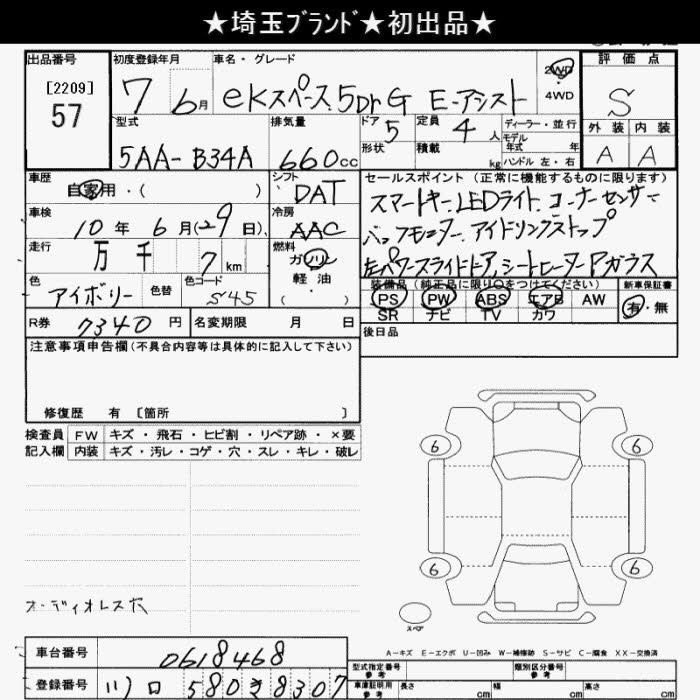 ★埼玉ﾌﾞﾗﾝﾄﾞ★初出品★
出品番号
[2209]
57
初度登録年月
7 6月
車名・グレード
eKスペース 5Dr G E-アシスト
2WD
4WD
評価点
S
外装 内装
A A
型式
5AA-B34A
排気量
660cc
ドア 5
形状
定員 4人
積載 kg
ディーラー・並行
モデル年式 年
ハンドル 左・右
車歴
自家用・( )
シフト
DAT
車検
10年 6月(29日)
冷房
AAC
走行
万千 7km
燃料
ガソリン
軽・油
( )
色
アイボリー
色替
色コード
S45
セールスポイント (正常に機能するものに限ります)
スマートキー.LEDライト.コーナーセンサー
バックモニター.アイドリングストップ
左パワースライドドア.シートヒーター.Pガラス
装備品(純正品に限り○をつけてください)
PS PW ABS エアB AW
SR ナビ TV カワ
新車保証書
有・無
R券 7340円
名変期限 月 日
後日品
注意事項申告欄(不具合内容等は具体的に記入して下さい)
修復歴 有 〔箇所 〕
検査員記入欄
FW キズ・飛石・ヒビ割・リペア跡・×要
内装 キズ・汚レ・コゲ・穴・スレ・キレ・破レ
6 6
6 6
スペア
オーディオレス穴
A-キズ E-エクボ U-凹み W-補修跡 S-サビ C-腐食 XX-交換済
車台番号 0618468
型式指定番号 参考
類別区分番号 参考
登録番号
580 8307
車庫証明用 参考 長さ cm 幅 cm 高さ cm